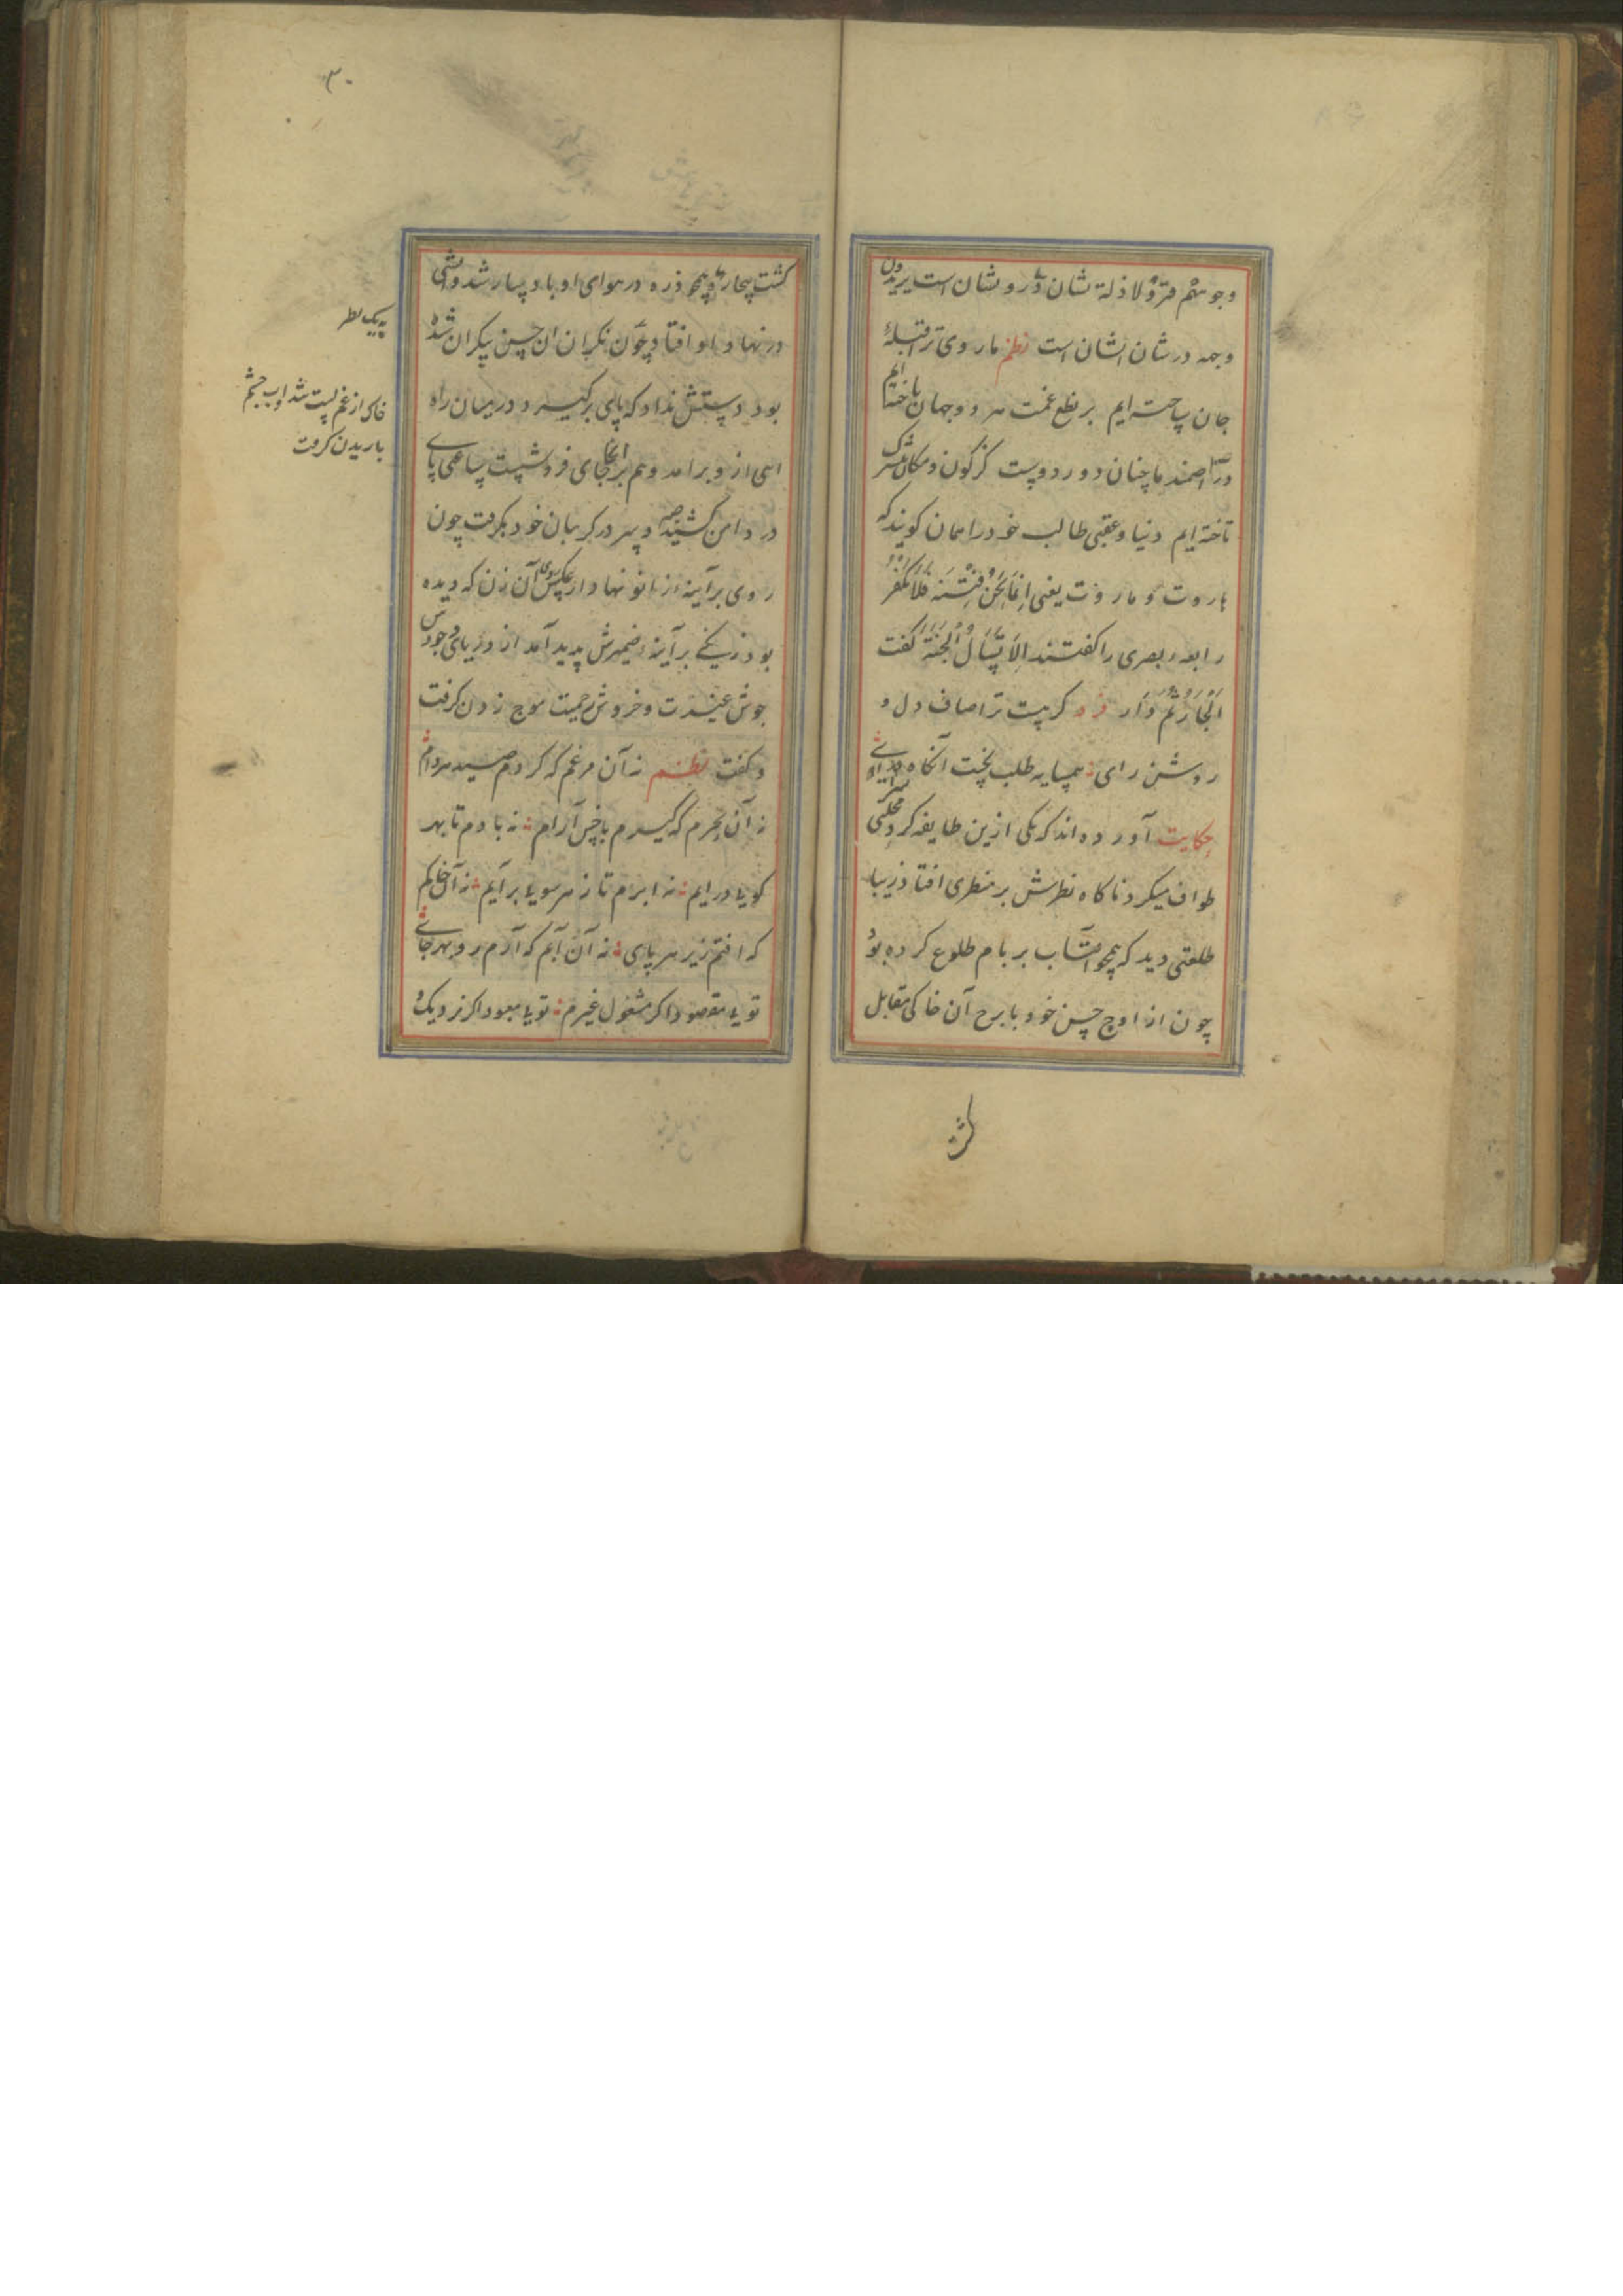 وجوههم قتر ولا ذلة نشان در و نشان است یریدون
وجهه در شان ایشان است نظم ما روی ترا قبلهٔ
جان ساخته ایم بر نطع غمت هر دو جهان باخته ایم
ما چنان دور دوست کز کون و مکان
تاخته ایم دنیا و عقبی طالب خود را همان کویند که
هاروت و ماروت یعنی اِنَّمَا نَحْنُ فِتْنَةٌ فَلَا تَكْفُرْ
رابعهٔ بصری را کفتند اَلَا تَسْأَلُ الْجَنَّةَ کفت
اَلْجَارُ ثُمَّ الدَّار فرد کر هست ترا صاف دل و
روشن رای همسایه طلب نخست آنکاه سرای
حکایت آورده اند که یکی ازین طایفه کرد محلتی
طواف میکرد ناکاه نظرش بر منظری افتاد زیبا
طلعتی دید که همچو آفتاب بر بام طلوع کرده بود
چون از اوج حسن خود با برج آن خاکی مقابل
کشت بیچاره همچو ذره در هوای او باد پیما شد و آتشی
در نهاد او افتاد چون نکران آن حسن بیکران شده
بود دستش نداد که پای برکیرد و در میان راه
اهی ازو برامد و هم بر انجای فرو نشست ساعتی پای
در دامن کشید و سر در کریبان خود بکرفت چون
روی بر آینهٔ زانو نهاد از عکس روی آن زن که دیده
بود زنکی بر آینهٔ ضمیرش پدید آمد از دریای وجودش
جوش غیرت و خروش حمیت موج زدن کرفت
و کفت نظم نه آن مرغم که کردم صید هر دام
نه آن بحرم که کیرم با خس آرام نه بادم تا بهر
کویی درایم نه ابرم تا ز هر سویی برآیم نه آن خاکم
که افتم زیر هر پای نه آن آبم که آرم رو بهر جای
تویی مقصود اکر مشغول غیرم تویی معبود اکر نزدیک
کشت
۳۰
به یک نظر
خاک از غم پست شد و اب چشم
باریدن کرفت